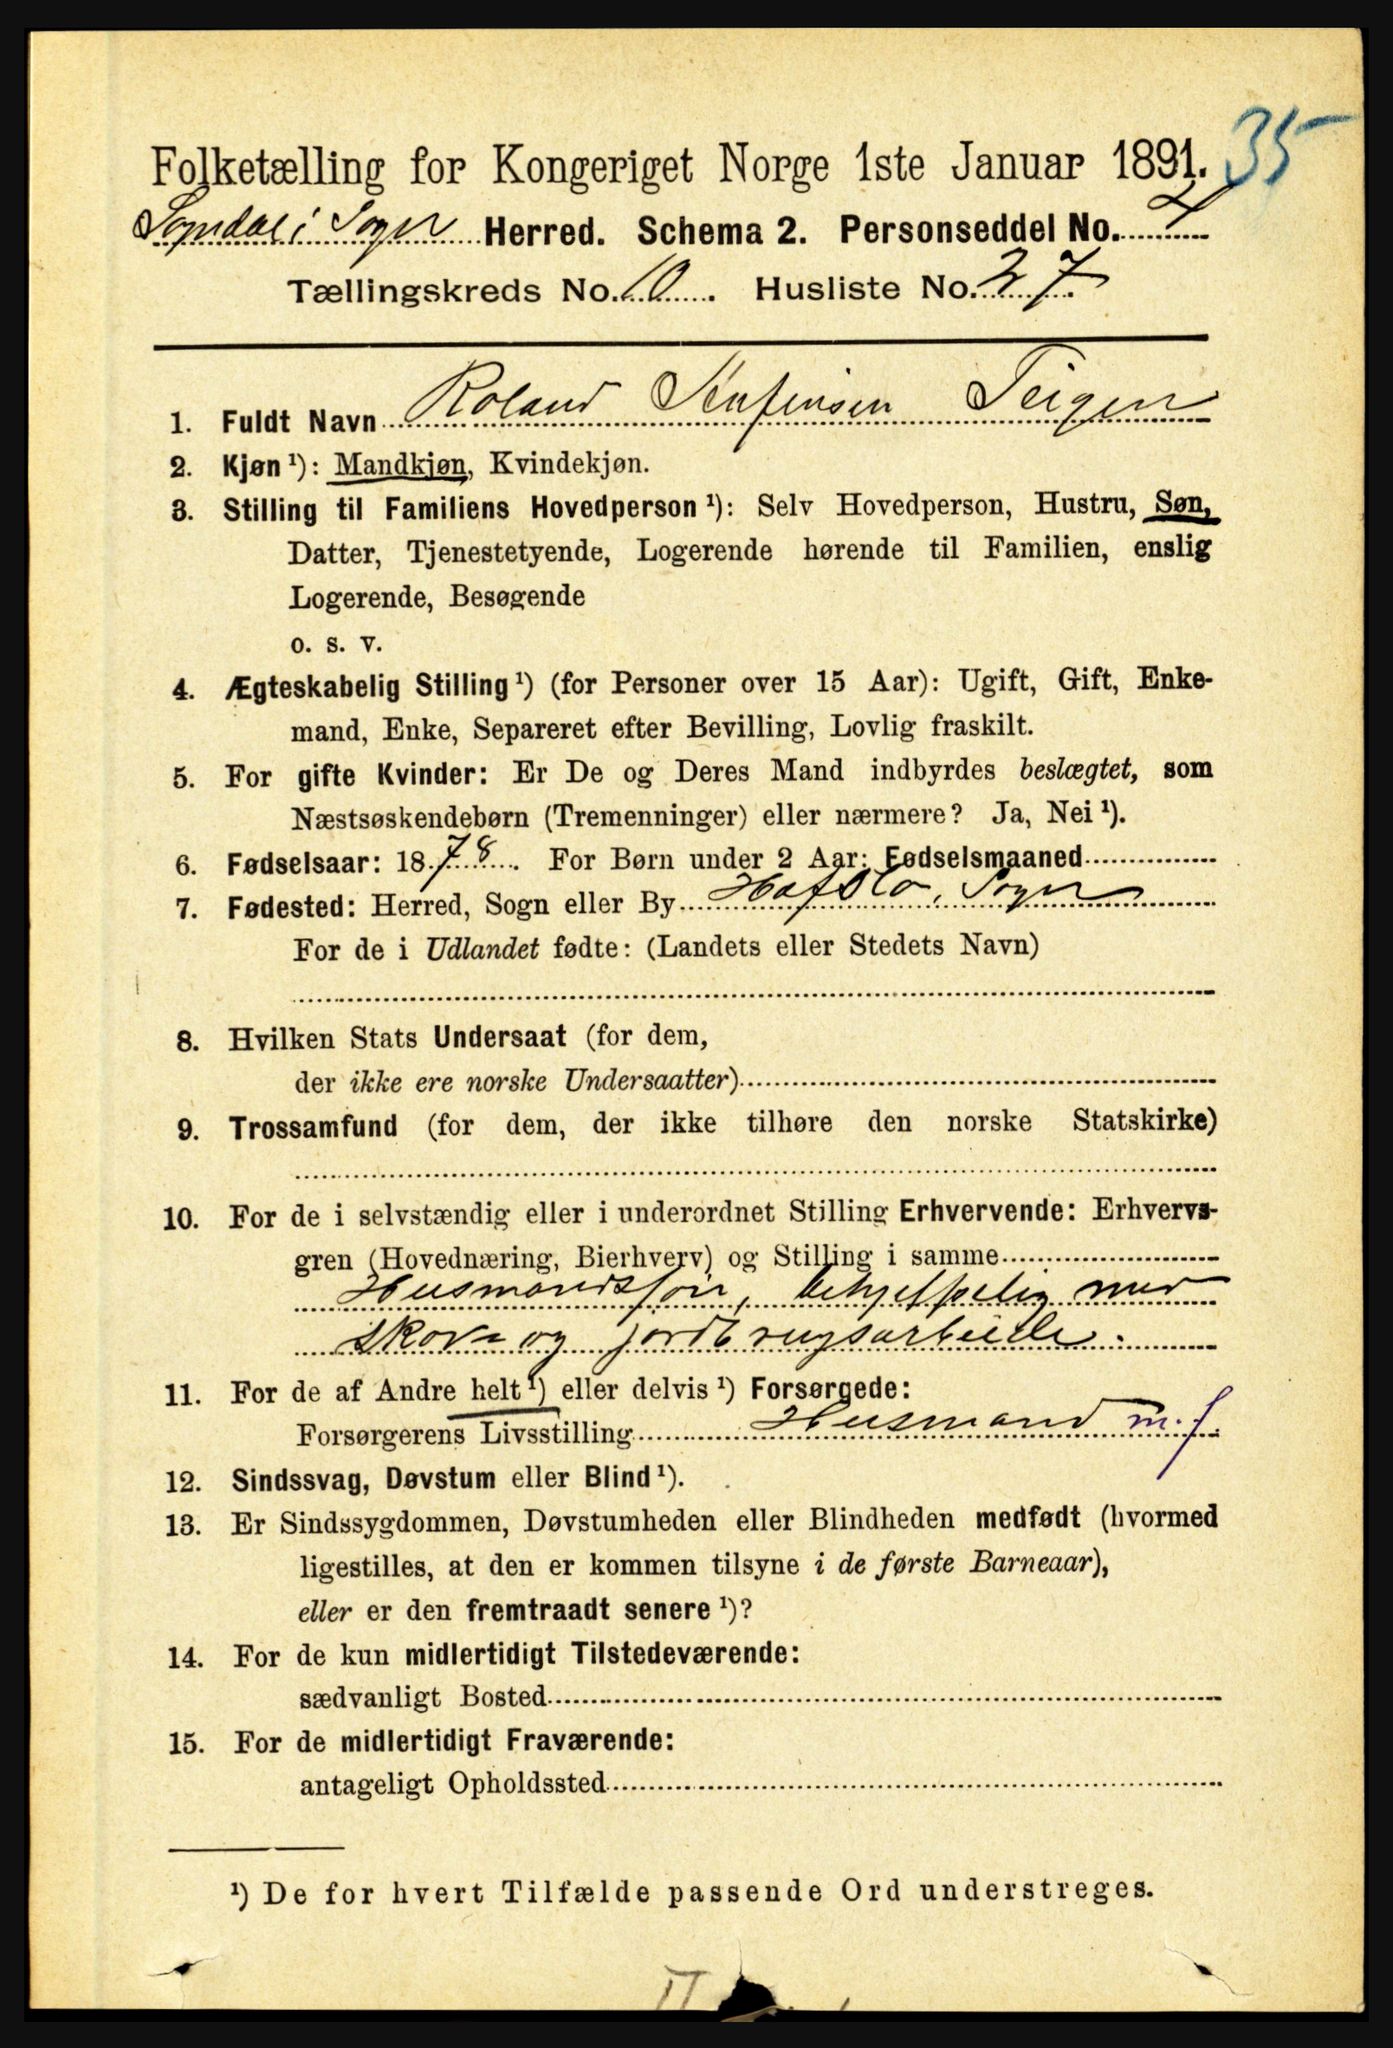 35
Folketælling for Kongeriget Norge 1ste Januar 1891.
Sogndal i Sogn Herred. Schema 2. Personseddel No. 4
Tællingskreds No. 10. Husliste No. 27.
1. Fuldt Navn Roland Teigen
2. Kjøn ¹): Mandkjøn, Kvindekjøn.
3. Stilling til Familiens Hovedperson ¹): Selv Hovedperson, Hustru, Søn,
Datter, Tjenestetyende, Logerende hørende til Familien, enslig
Logerende, Besøgende
o. s. v.
4. Ægteskabelig Stilling ¹) (for Personer over 15 Aar): Ugift, Gift, Enke-
mand, Enke, Separeret efter Bevilling, Lovlig fraskilt.
5. For gifte Kvinder: Er De og Deres Mand indbyrdes beslægtet, som
Næstsøskendebørn (Tremenninger) eller nærmere? Ja, Nei ¹).
6. Fødselsaar: 1878. For Børn under 2 Aar: Fødselsmaaned
7. Fødested: Herred, Sogn eller By Hafslo, Sogn
For de i Udlandet fødte: (Landets eller Stedets Navn)
8. Hvilken Stats Undersaat (for dem,
der ikke ere norske Undersaatter)
9. Trossamfund (for dem, der ikke tilhøre den norske Statskirke)
10. For de i selvstændig eller i underordnet Stilling Erhvervende: Erhvervs-
gren (Hovednæring, Bierhverv) og Stilling i samme
Husmandssøn, behjelpelig med
skov- og jordbrugsarbeide.
11. For de af Andre helt ¹) eller delvis ¹) Forsørgede:
Forsørgerens Livsstilling Husmand m. j.
12. Sindssvag, Døvstum eller Blind ¹).
13. Er Sindssygdommen, Døvstumheden eller Blindheden medfødt (hvormed
ligestilles, at den er kommen tilsyne i de første Barneaar),
eller er den fremtraadt senere ¹)?
14. For de kun midlertidigt Tilstedeværende:
sædvanligt Bosted
15. For de midlertidigt Fraværende:
antageligt Opholdssted
¹) De for hvert Tilfælde passende Ord understreges.